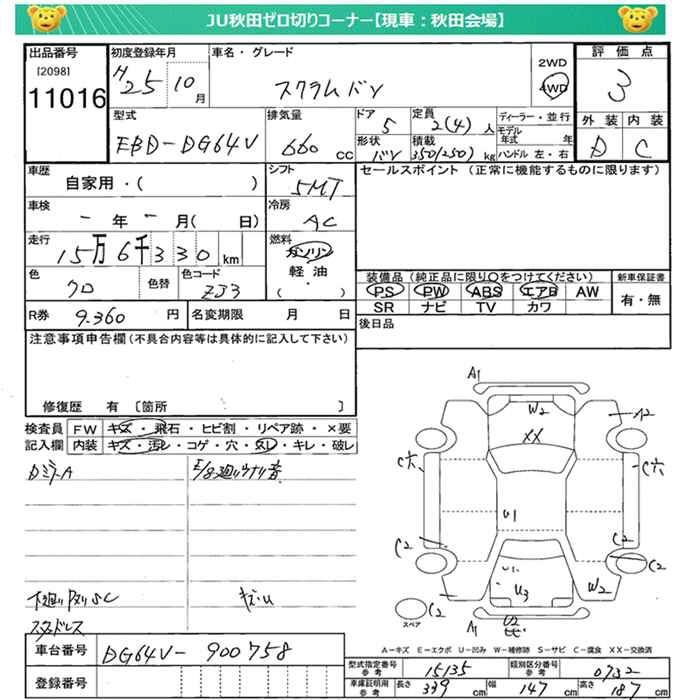 JU秋田ゼロ切りコーナー【現車：秋田会場】
出品番号 初度登録年月 車名・グレード 評価点
[2098]
11016 H25 10月 スクラムバン 2WD 4WD 3
型式 排気量 ドア 定員 ディーラー・並行 外装 内装
EBD-DG64V 660cc 5 2(4)人 モデル年式 年 D C
形状 バン 積載 350(250)kg ハンドル 左・右
車歴 シフト セールスポイント（正常に機能するものに限ります）
自家用・( ) 5MT
車検 冷房
-年-月( 日) AC
走行 燃料
15万6千330km ガソリン
軽油
・( )
色 色替 色コード 装備品（純正品に限り○をつけてください） 新車保証書
クロ ZJ3 PS PW ABS エアB AW 有・無
SR ナビ TV カワ
R券 9.360円 名変期限 月 日 後日品
注意事項申告欄（不具合内容等は具体的に記入して下さい）
修復歴 有 〔箇所 〕
検査員 FW キズ・飛石・ヒビ割・リペア跡・×要
記入欄 内装 キズ・汚レ・コゲ・穴・スレ・キレ・破レ
DミラーA E/g廻りウナリ音
下廻りサビSC キズ・U
スタッドレス
A1
W2 A2
XX
C穴 C穴
U1
C2 C2
U1 C2
U3 W2
スペア C2 U2
A1
A－キズ E－エクボ U－凹み W－補修跡 S－サビ C－腐食 XX－交換済
車台番号 DG64V-900758
登録番号
型式指定番号 参考 15135 類別区分番号 参考 0732
車庫証明用 参考 長さ 339cm 幅 147cm 高さ 187cm